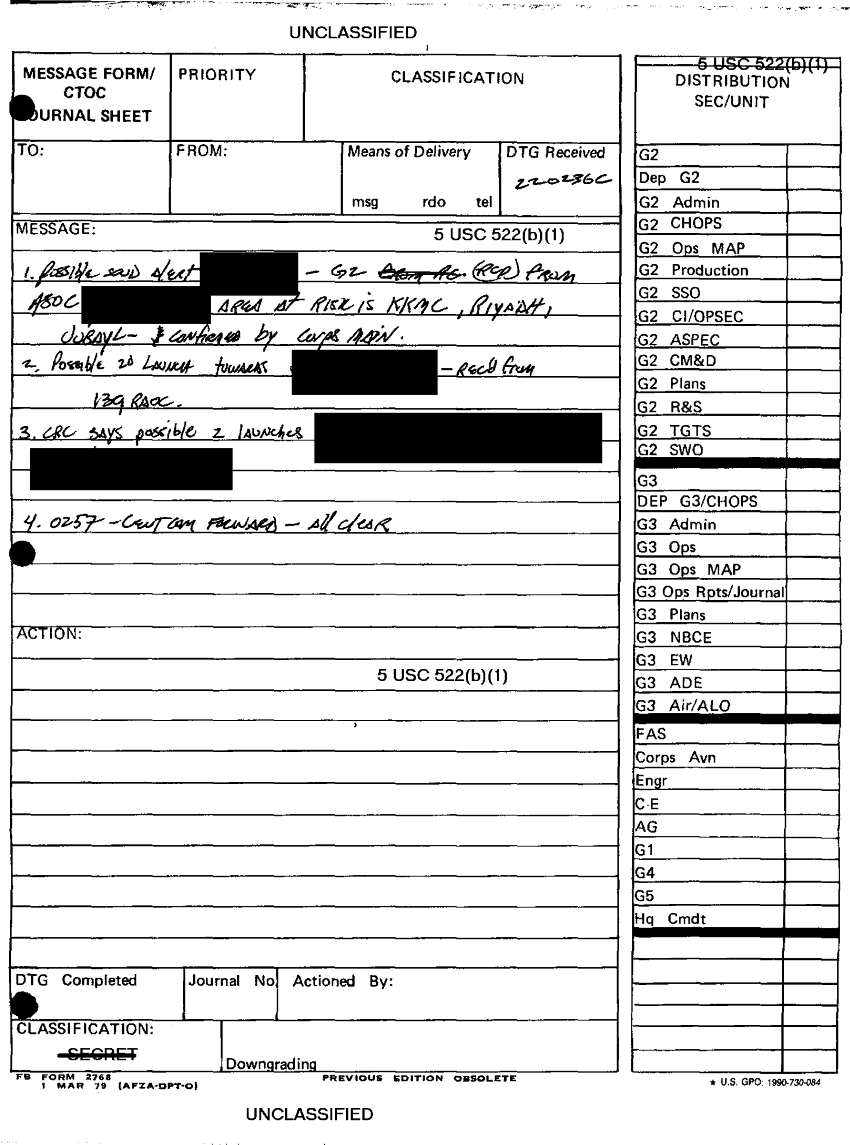 UNCLASSIFIED
MESSAGE FORM/
CTOC
JOURNAL SHEET
PRIORITY
CLASSIFICATION
TO:
FROM:
Means of Delivery
msg rdo tel
DTG Received
220236C
MESSAGE:
5 USC 522(b)(1)
1. Possible scud alert - G2 (RCR) from
ASOC AREA AT RISK is KKMC, RIYADH,
JUBAYL - confirmed by Corps MAIN.
2. Possible 2d Launch towards - Rec'd from
139 RAOC.
3. CRC says possible 2 launches
4. 0257 - CENTCOM FORWARD - All cleaR
ACTION:
5 USC 522(b)(1)
DTG Completed
Journal No.
Actioned By:
CLASSIFICATION:
SECRET
Downgrading
FB FORM 2768
1 MAR 79 (AFZA-DPT-O)
PREVIOUS EDITION OBSOLETE
5 USC 522(b)(1)
DISTRIBUTION
SEC/UNIT
G2
Dep G2
G2 Admin
G2 CHOPS
G2 Ops MAP
G2 Production
G2 SSO
G2 CI/OPSEC
G2 ASPEC
G2 CM&D
G2 Plans
G2 R&S
G2 TGTS
G2 SWO
G3
DEP G3/CHOPS
G3 Admin
G3 Ops
G3 Ops MAP
G3 Ops Rpts/Journal
G3 Plans
G3 NBCE
G3 EW
G3 ADE
G3 Air/ALO
FAS
Corps Avn
Engr
C-E
AG
G1
G4
G5
Hq Cmdt
* U.S. GPO: 1990-730-084
UNCLASSIFIED